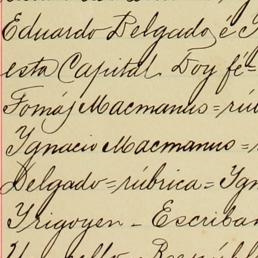 Eduardo Delgado, é
esta Capital Doy fé=
Tomás Macmanus=rú
Ygnacio Macmanus=
Delgado=rúbrica=Ygn
Yrigoyen - Escriban